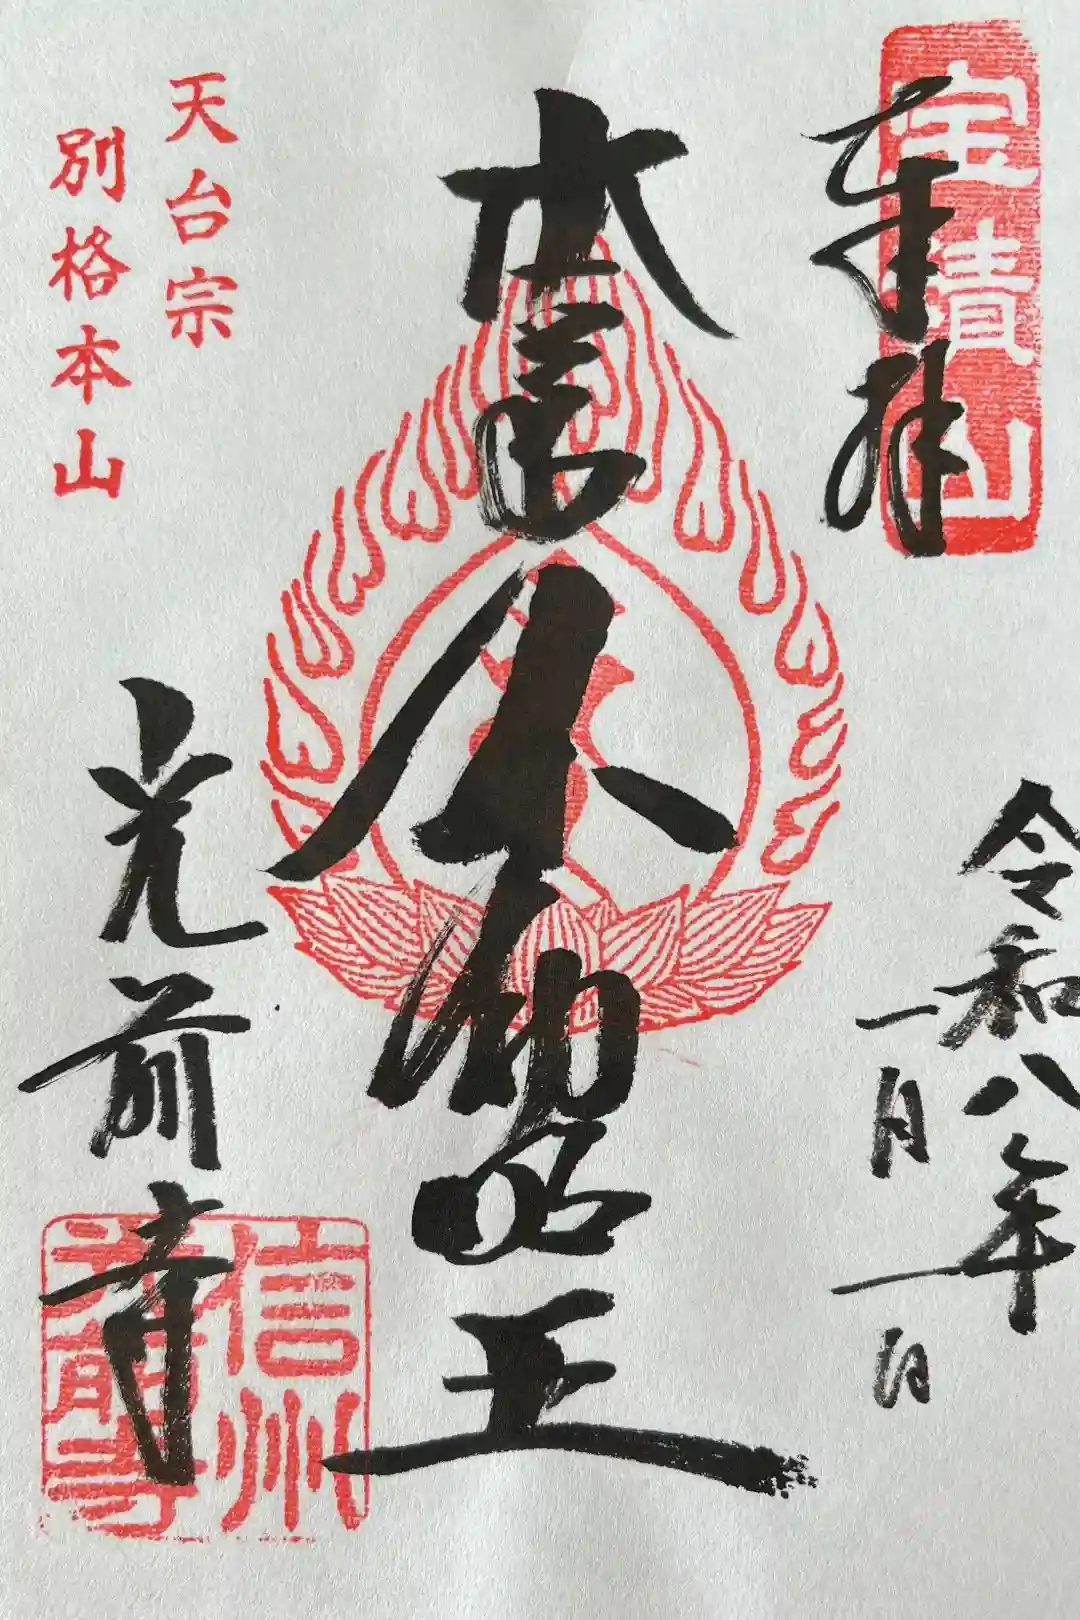 宝積山
奉拝
令和八年
一月一日
本尊不動明王
天台宗
別格本山
光前寺
信州
光前寺